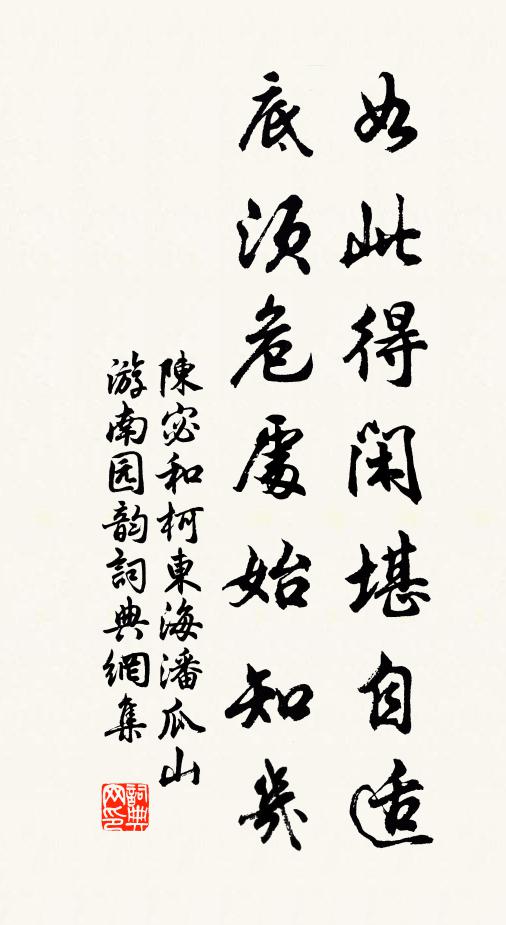 如此得閑堪自适
底須危處始知幾
陳宓和柯東海潘瓜山
游南园韵詞典網集
詞典网印